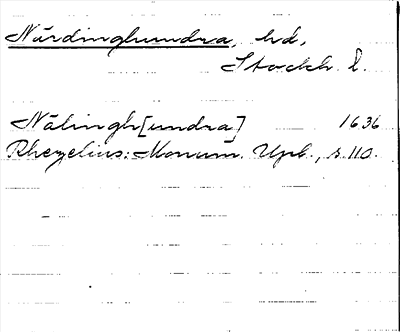 Närdinghundra, hd,
Stockh. l.
Nälingh[undra] 1636
Rhezelius: Monum. Upl., s. 110.